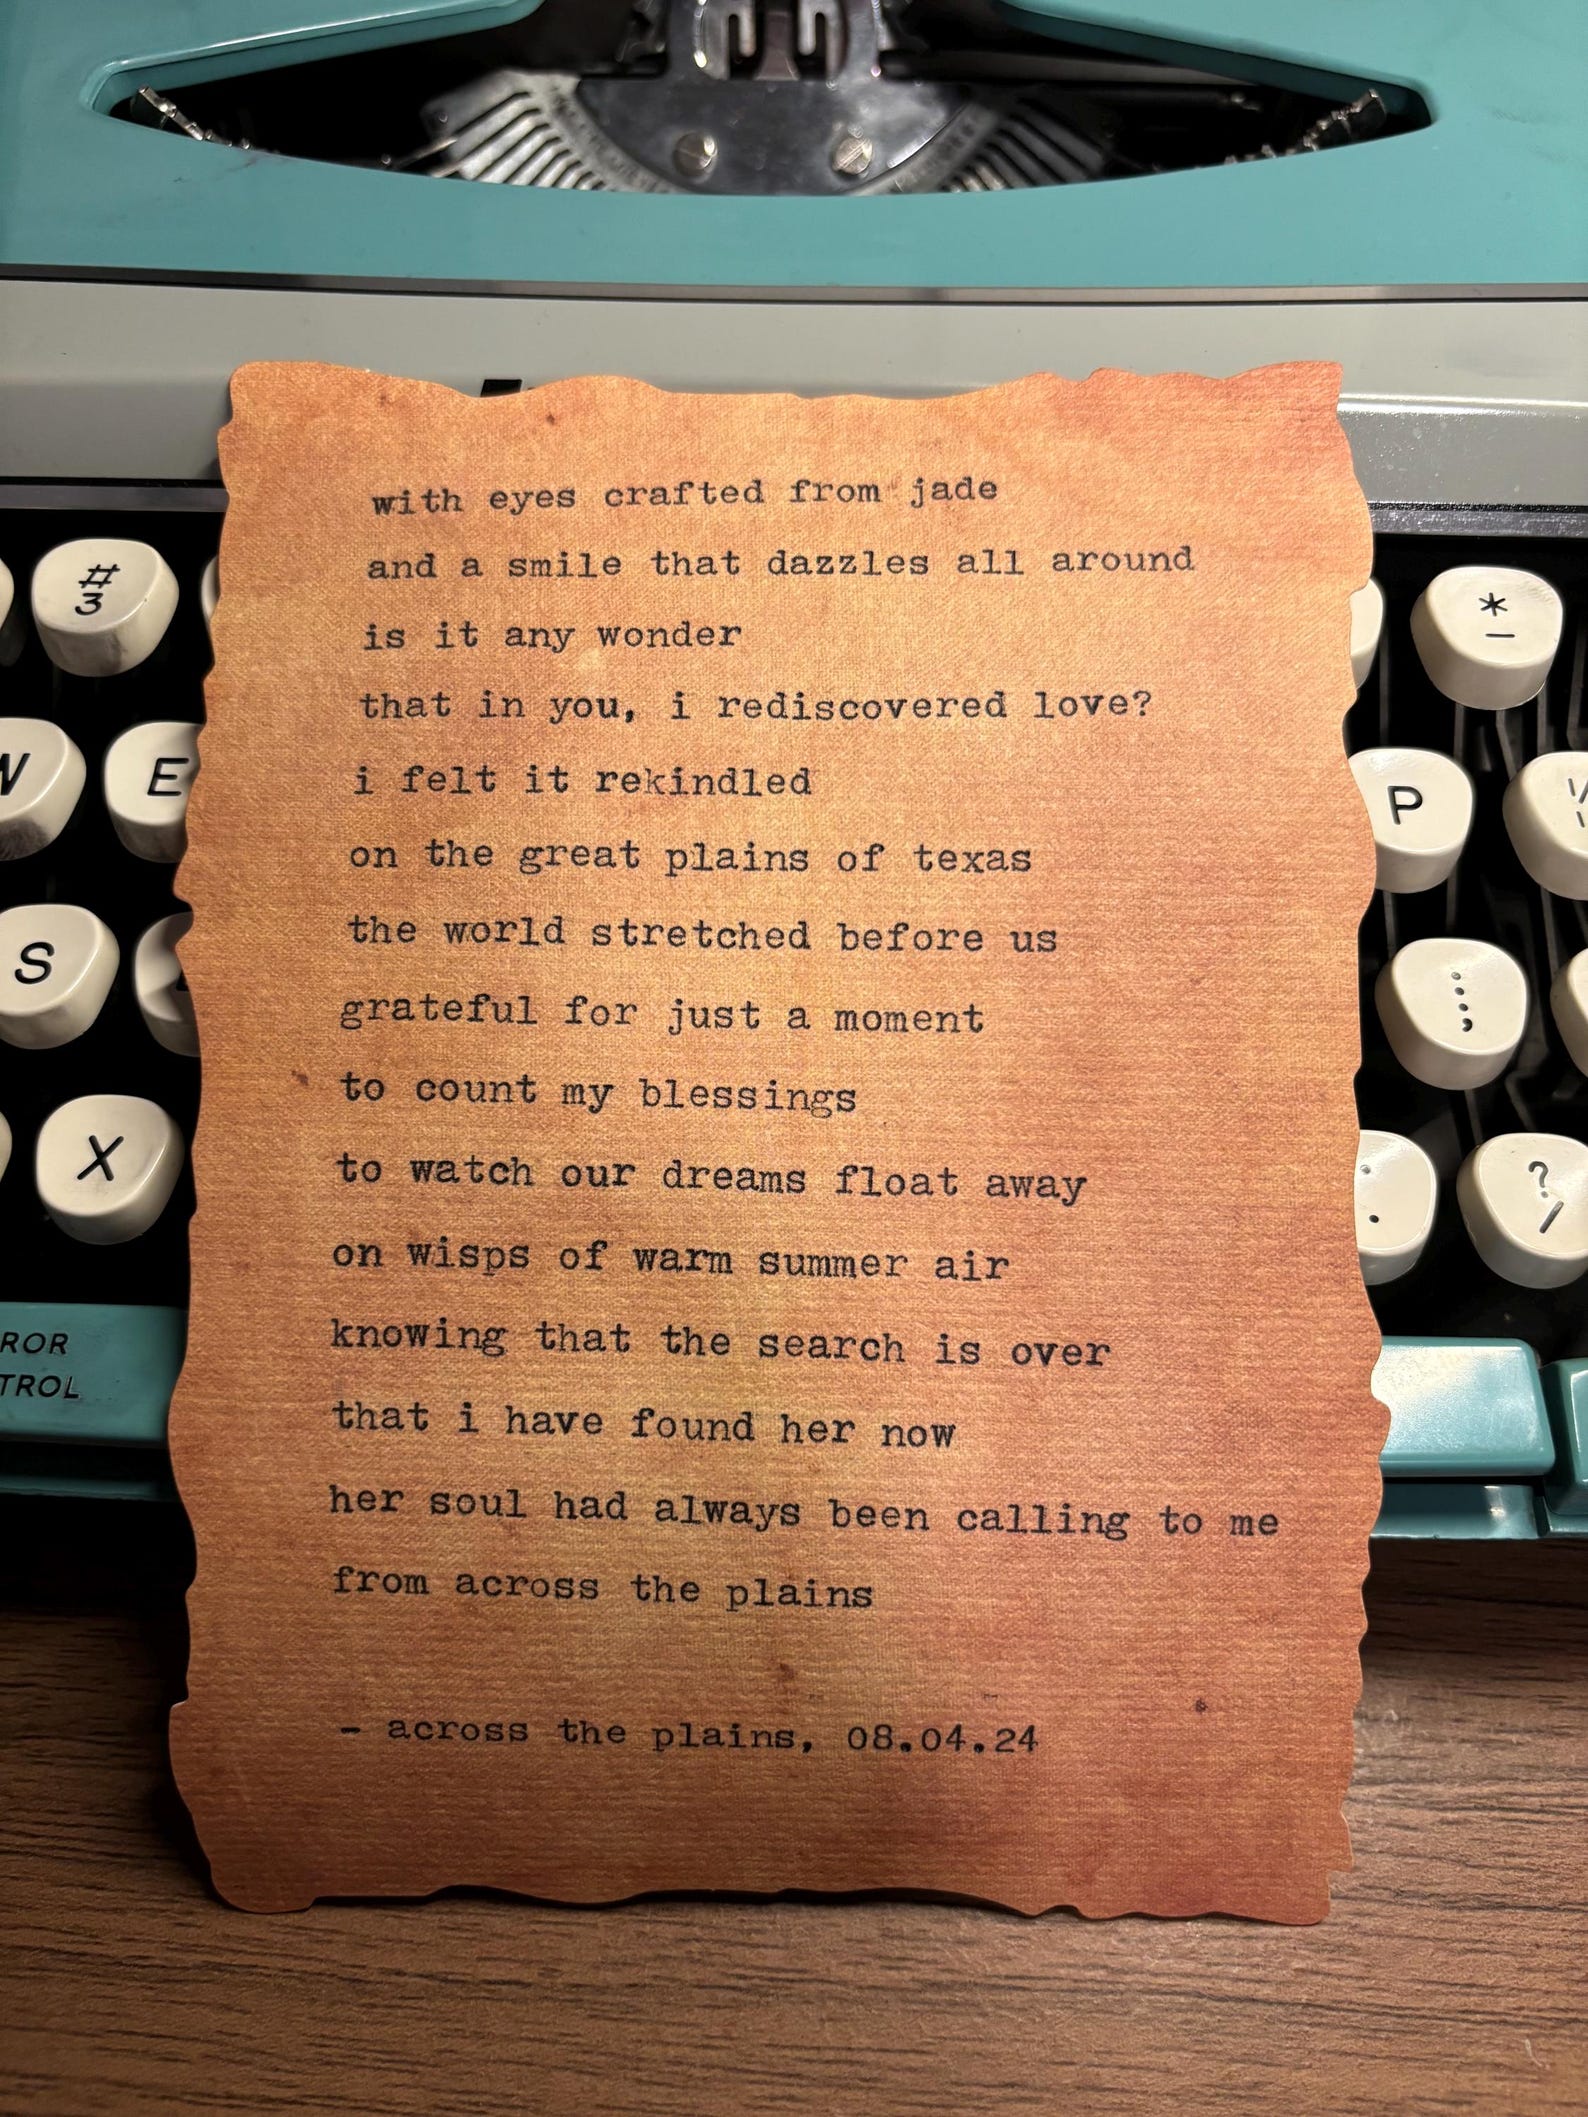 #
3
*
-
with eyes crafted from jade
and a smile that dazzles all around
is it any wonder
that in you, i rediscovered love?
i felt it rekindled
on the great plains of texas
the world stretched before us
grateful for just a moment
to count my blessings
to watch our dreams float away
on wisps of warm summer air
knowing that the search is over
that i have found her now
her soul had always been calling to me
from across the plains
- across the plains, 08.04.24
W E
P
S
:
;
X
.
?
/
ROR
TROL